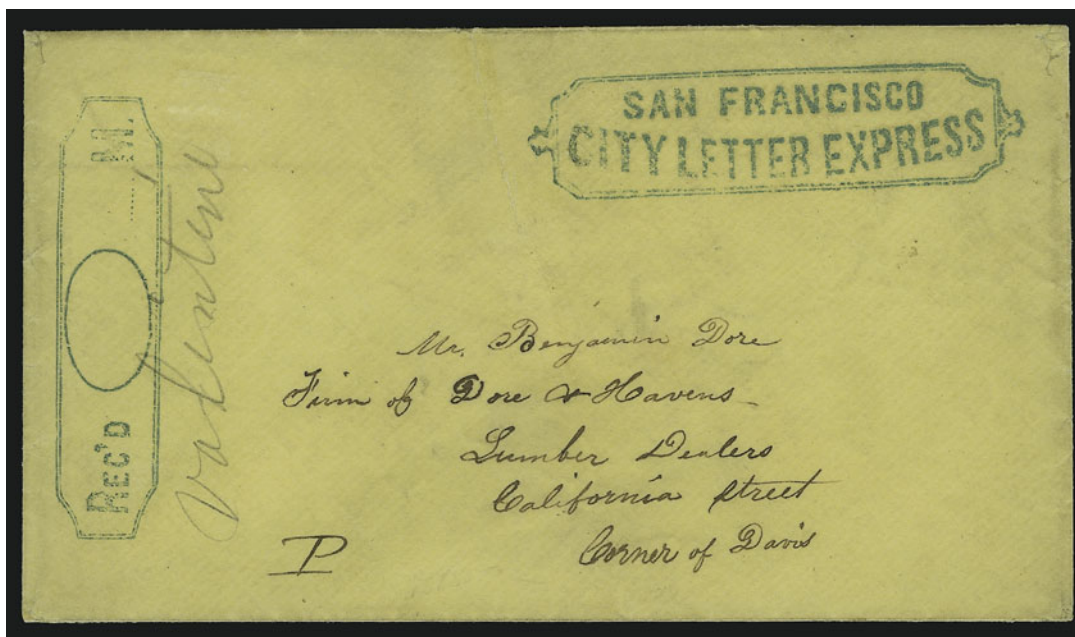 SAN FRANCISCO
CITY LETTER EXPRESS
REC'D M.
Valentine
Mr. Benjamin Dore
Firm of Dore & Havens
Lumber Dealers
California Street
Corner of Davis
P